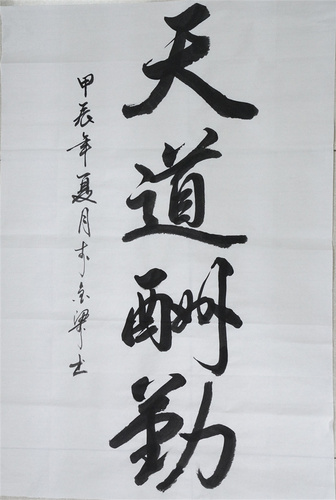 天道酬勤
甲辰年夏月于金梁书